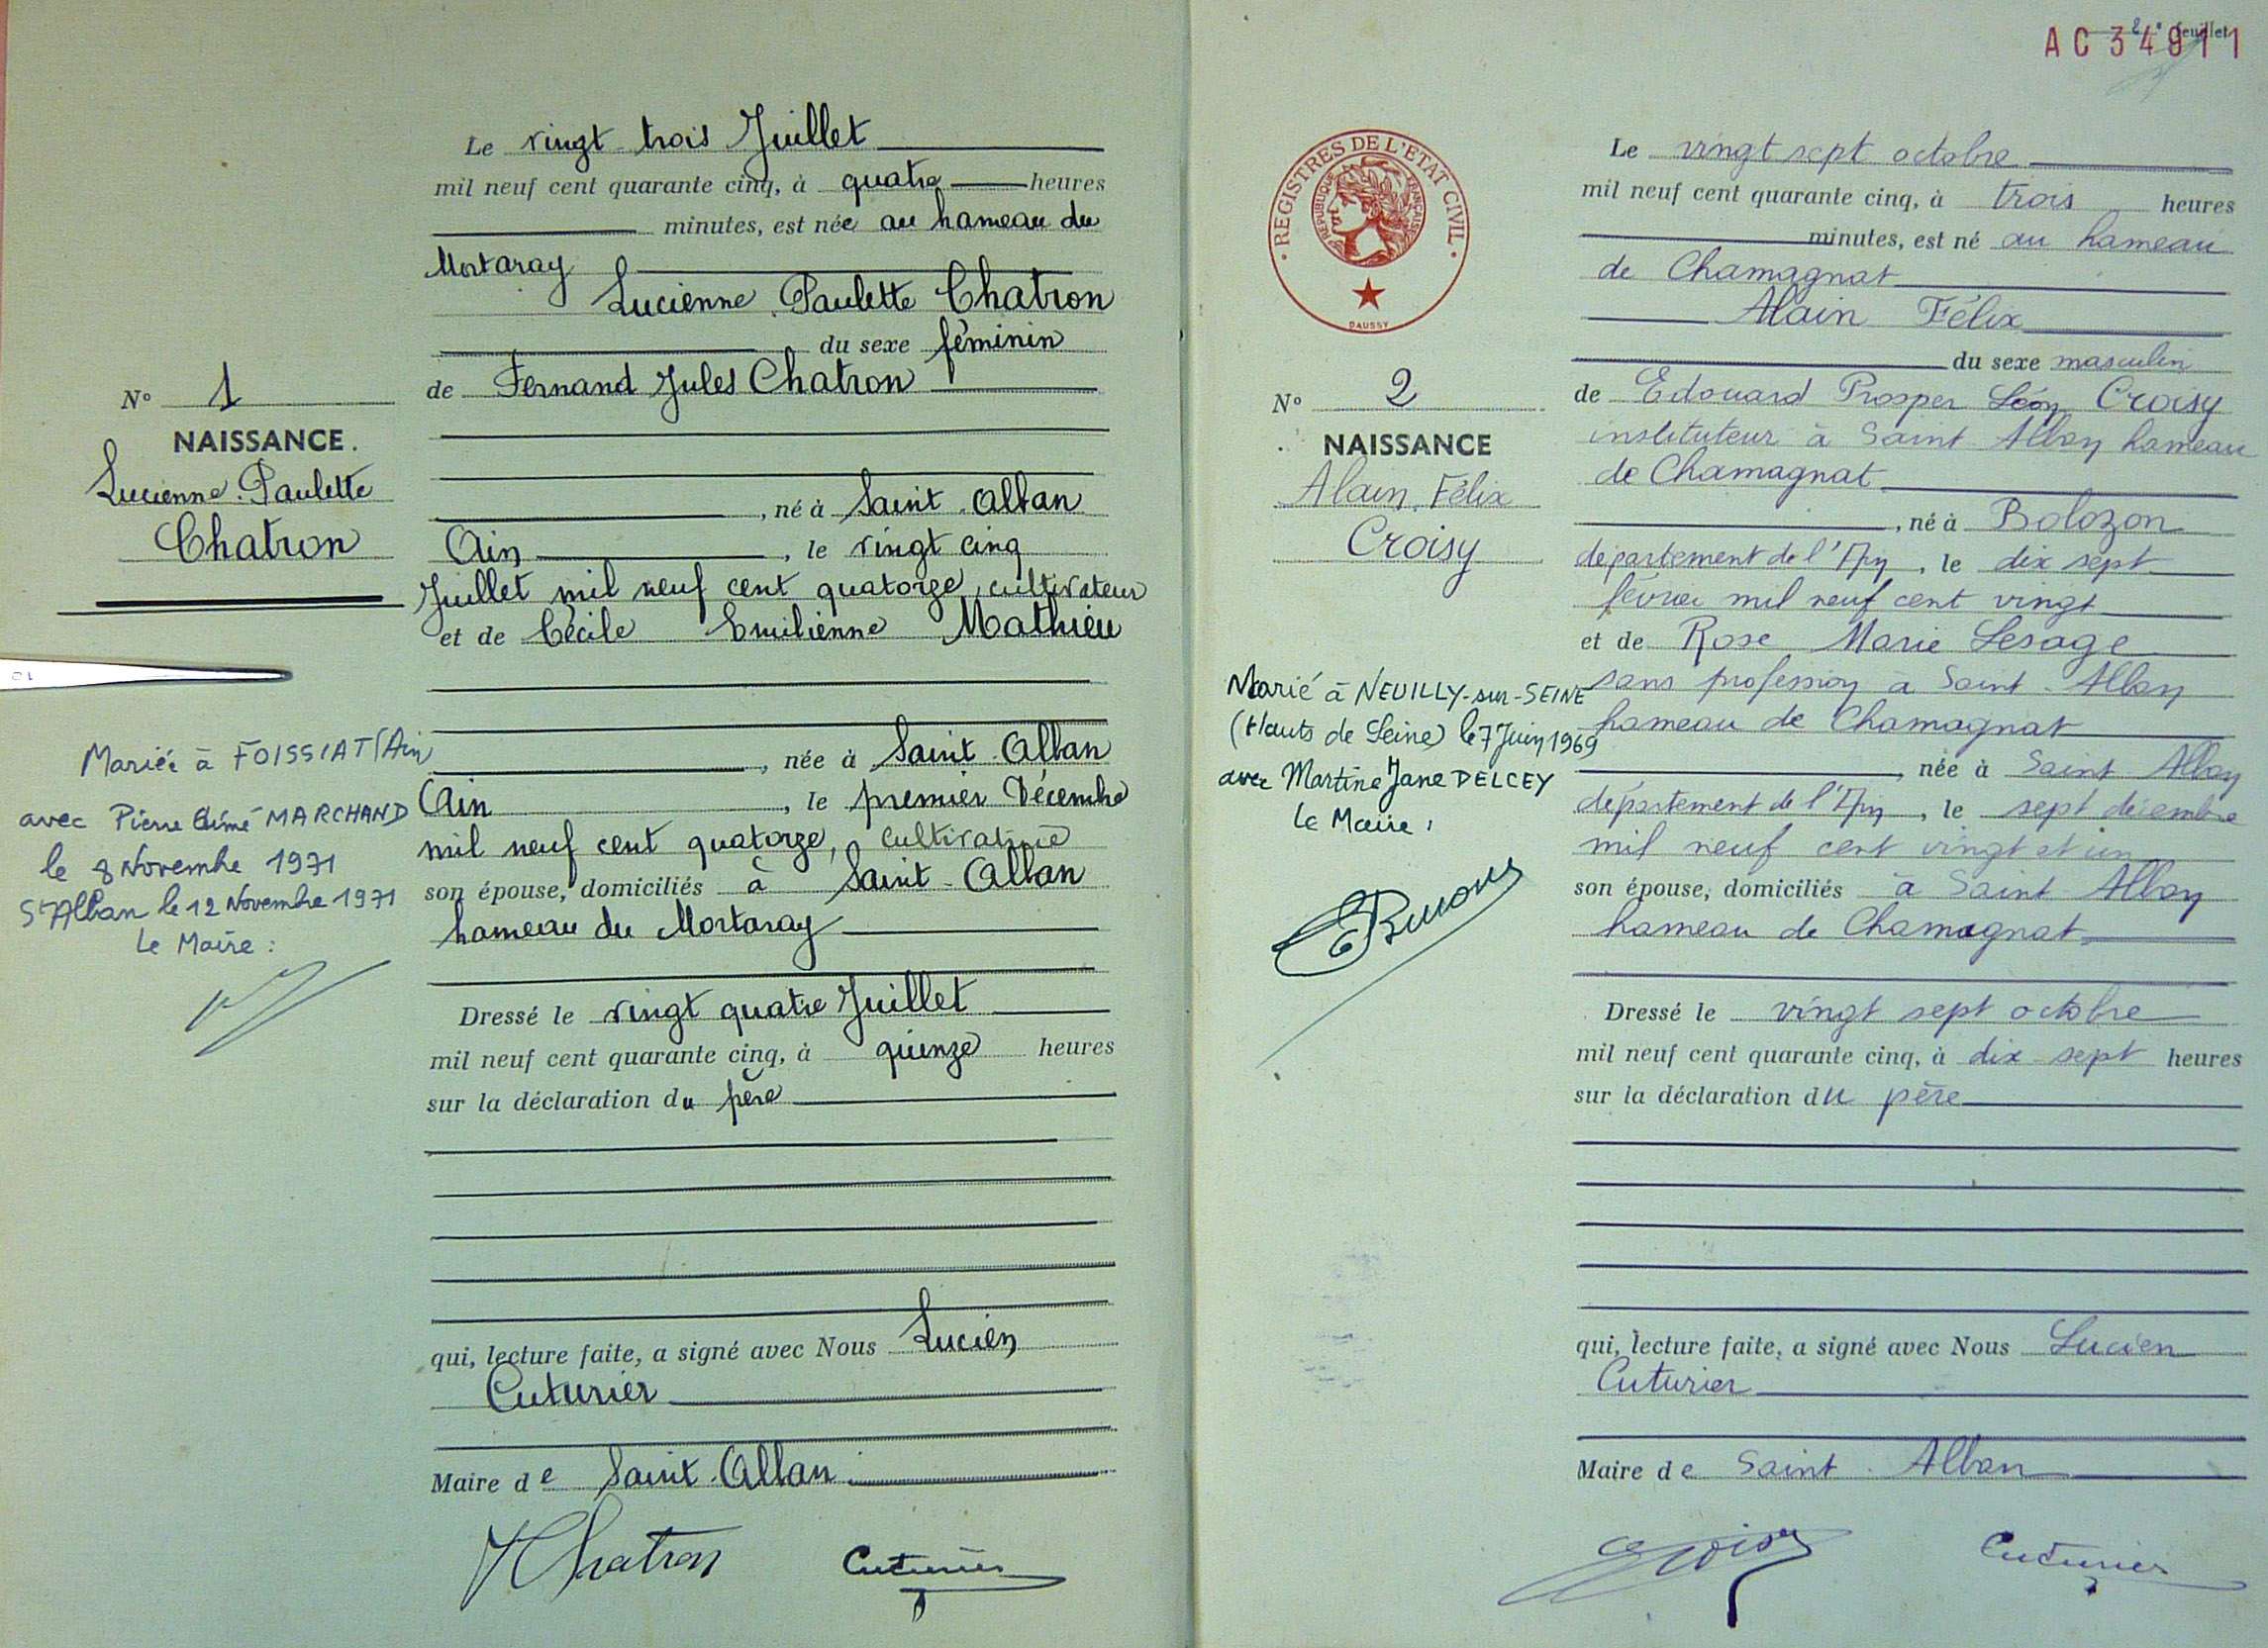 Le vingt trois Juillet
mil neuf cent quarante cinq, à quatre heures
minutes, est née au hameau du
Mortaray
Lucienne Paulette Chatron
du sexe féminin
de Fernand Jules Chatron
N° 1
NAISSANCE.
Lucienne Paulette
Chatron
, né à Saint Alban
Ain, le vingt cinq
Juillet mil neuf cent quatorze, cultivateur
et de Cécile Emilienne Mathieu
Mariée à FOISSIAT (Ain
avec Pierre Aimé MARCHAND
le 8 Novembre 1971
St Alban le 12 Novembre 1971
Le Maire :
, née à Saint Alban
Ain, le premier Décembre
mil neuf cent quatorze, cultivatrice
son épouse, domiciliés à Saint-Alban
hameau du Mortaray
Dressé le vingt quatre Juillet
mil neuf cent quarante cinq, à quinze heures
sur la déclaration du père
qui, lecture faite, a signé avec Nous Lucien
Cuturier
Maire de Saint-Alban
Chatron Cuturier
2e feuillet
AC 34911
REGISTRES DE L'ETAT CIVIL
REPUBLIQUE FRANÇAISE
DAUSSY
Le vingt sept octobre
mil neuf cent quarante cinq, à trois heures
minutes, est né au hameau
de Chamagnat
Alain Félix
du sexe masculin
N° 2
NAISSANCE
Alain, Félix
Croisy
de Edouard Prosper Léon Croisy
instituteur à Saint Alban hameau
de Chamagnat
, né à Bolozon
département de l'Ain, le dix sept
février mil neuf cent vingt
et de Rose Marie Lesage
sans profession a Saint-Alban
hameau de Chamagnat
Marié à NEUILLY-sur-SEINE
(Hauts de Seine) le 7 Juin 1969
avec Martine Jane DELCEY
Le Maire,
, née à Saint Alban
département de l'Ain, le sept décembre
mil neuf cent vingt et un
son épouse, domiciliés à Saint Alban
hameau de Chamagnat
Dressé le vingt sept octobre
mil neuf cent quarante cinq, à dix sept heures
sur la déclaration du père
qui, lecture faite, a signé avec Nous Lucien
Cuturier
Maire de Saint-Alban
Croisy Cuturier